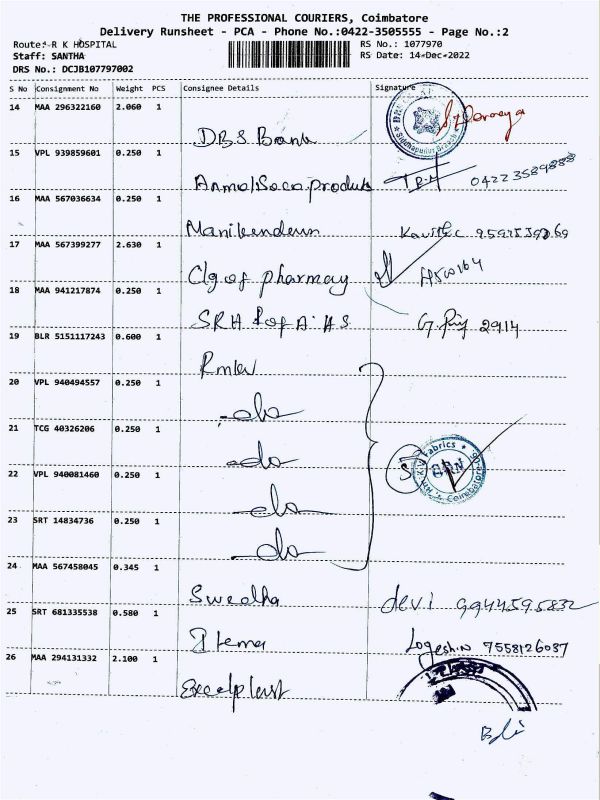 THE PROFESSIONAL COURIERS, Coimbatore
Delivery Runsheet - PCA - Phone No.:0422-3505555 - Page No.:2
Route:-R K HOSPITAL
Staff: SANTHA
DRS No.: DCJB107797002
RS No.: 1077970
RS Date: 14-Dec-2022
S No Consignment No Weight PCS Consignee Details Signature
14 MAA 296322160 2.060 1
DBS Bank
15 VPL 939859601 0.250 1
Siddhapudur Branch
04223589888
16 MAA 567036634 0.250 1
Manikendeun
17 MAA 567399277 2.630 1
Clg of pharmay
18 MAA 941217874 0.250 1
SRH
2914
19 BLR 5151117243 0.600 1
20 VPL 940494557 0.250 1
-do
21 TCG 40326206 0.250 1
-do
Fabrics
BRN
Coimbatore
22 VPL 940081460 0.250 1
do
23 SRT 14834736 0.250 1
do
24 MAA 567458045 0.345 1
Swedha devi 9944595832
25 SRT 681335538 0.580 1
Logesh.N 7558126037
26 MAA 294131332 2.100 1
Excelplast